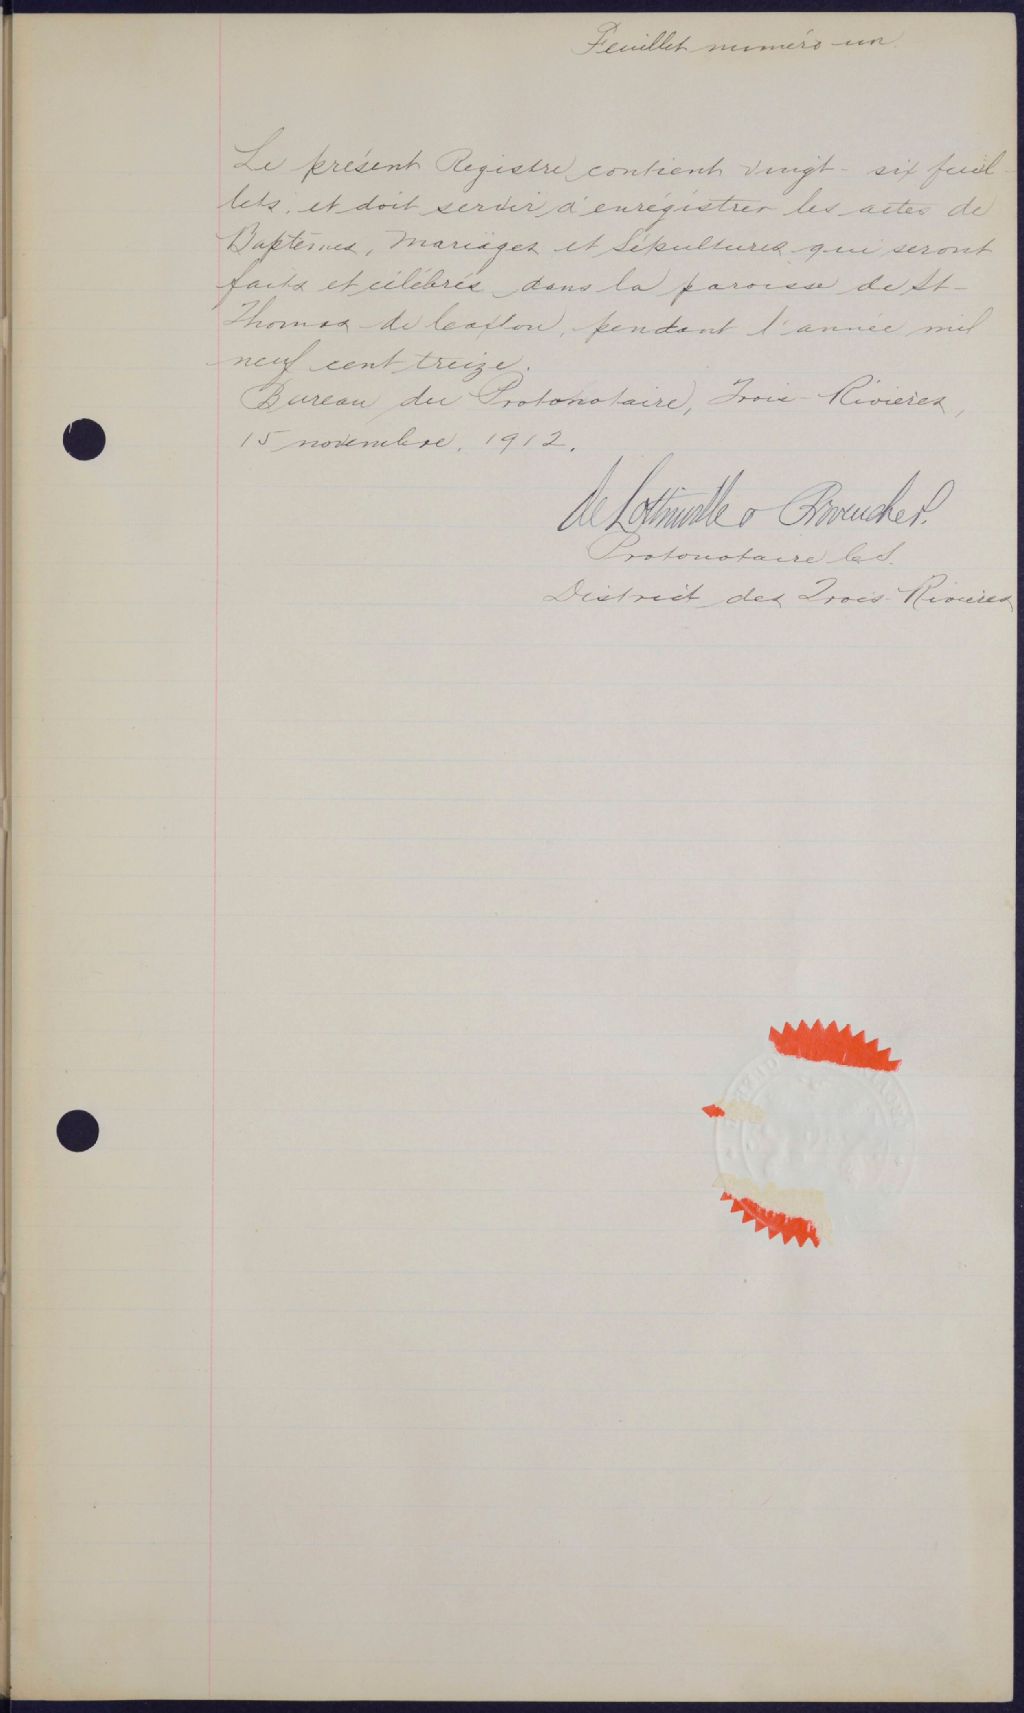 Feuillet numéro un
Le présent Registre contient vingt-six feuil-
lets, et doit servir à enrégistrer les actes de
Baptêmes, Mariages et Sépultures qui seront
faits et célébrés dans la paroisse de St-
Thomas de Caxton, pendant l'année mil
neuf cent treize.
Bureau du Protonotaire, Trois-Rivières,
15 novembre, 1912.
de Lottinville & Provencher.
Protonotaire C.S.
District des Trois-Rivières